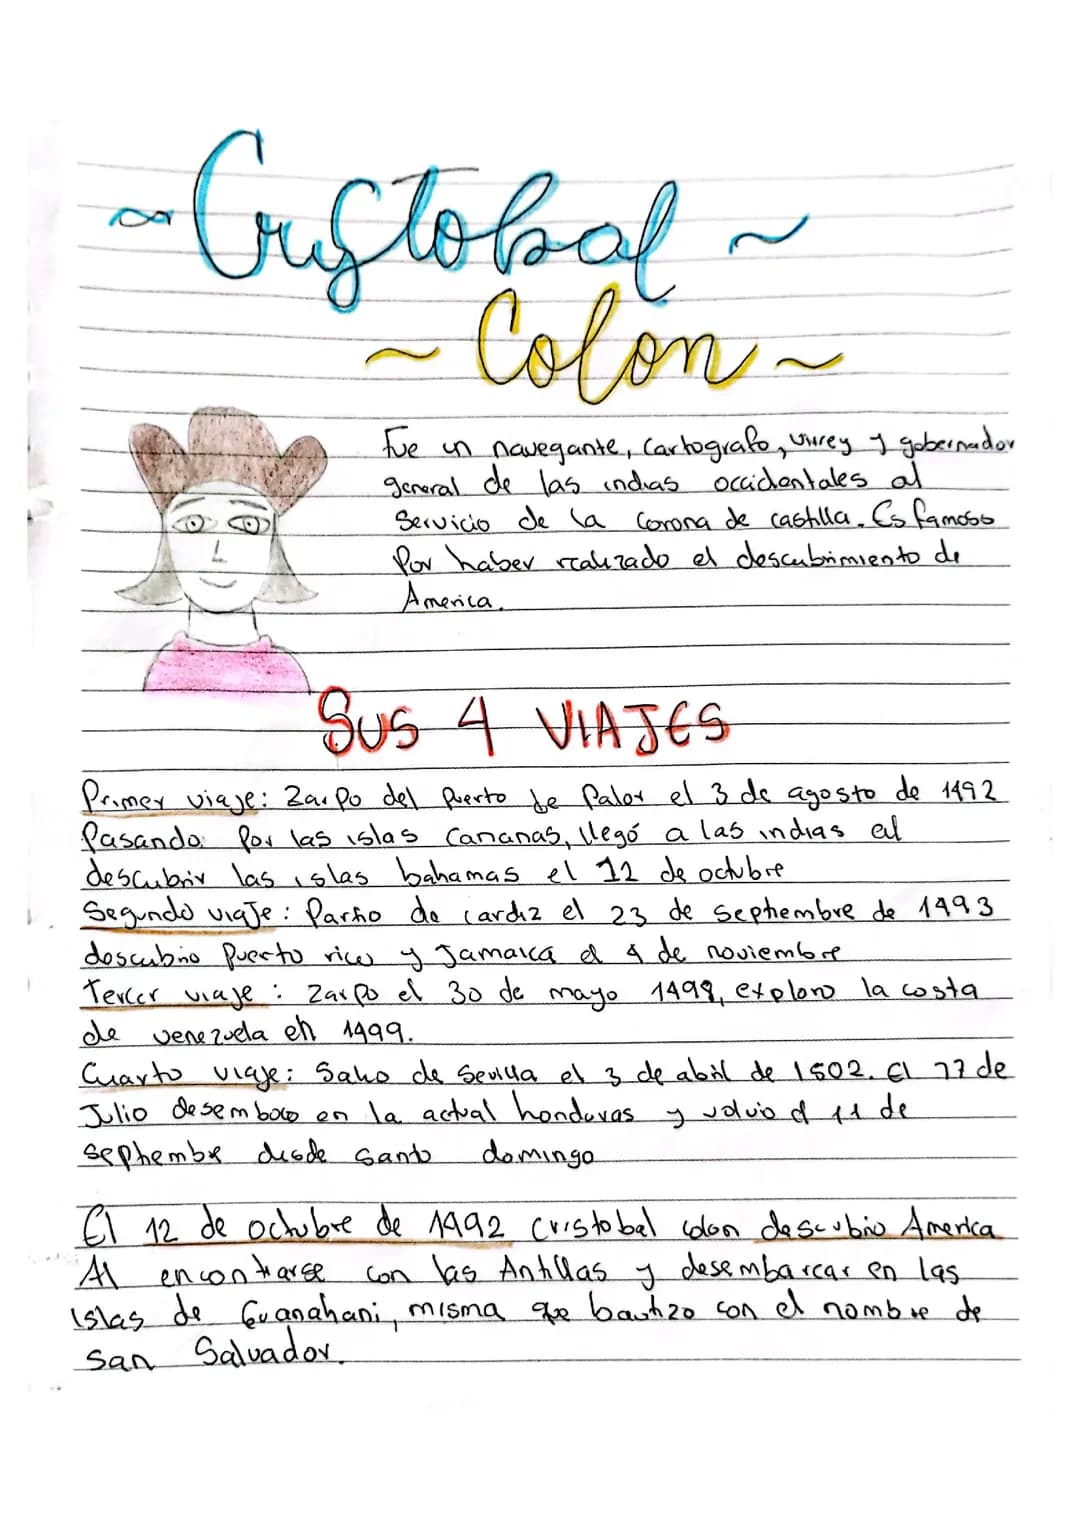 Cristobal
~ Colon ~
Fue un navegante, Cartografo, virrey y gobernador
general de las indias occidentales al
Servicio de la Corona de castilla. Es famoso
Por haber realizado el descubrimiento de
America.
SUS 4 VIAJES
Primer viaje: Zarpo del Puerto de Palos el 3 de agosto de 1492
Pasando: Por las islas Canarias, llegó a las indias al
descubrir las islas bahamas el 12 de octubre
Segundo viaje: Partio de cardiz el 23 de Septiembre de 1493
descubrio Puerto rico y Jamaica el 4 de noviembre
Tercer viaje: Zarpo el 30 de mayo 1498, exploro la costa
de venezuela en 1499.
Cuarto viaje: Salio de Sevilla el 3 de abil de 1502. El 17 de
Julio desemboco en la actual honduras y volvio el 11 de
Septiembre desde Santo domingo
El 12 de octubre de 1992 Cristobal colon descubrio America
Al encontrarse con las Antillas y desembarcar en las
islas de Guanahani, misma que bautizo con el nombre de
san Salvador.